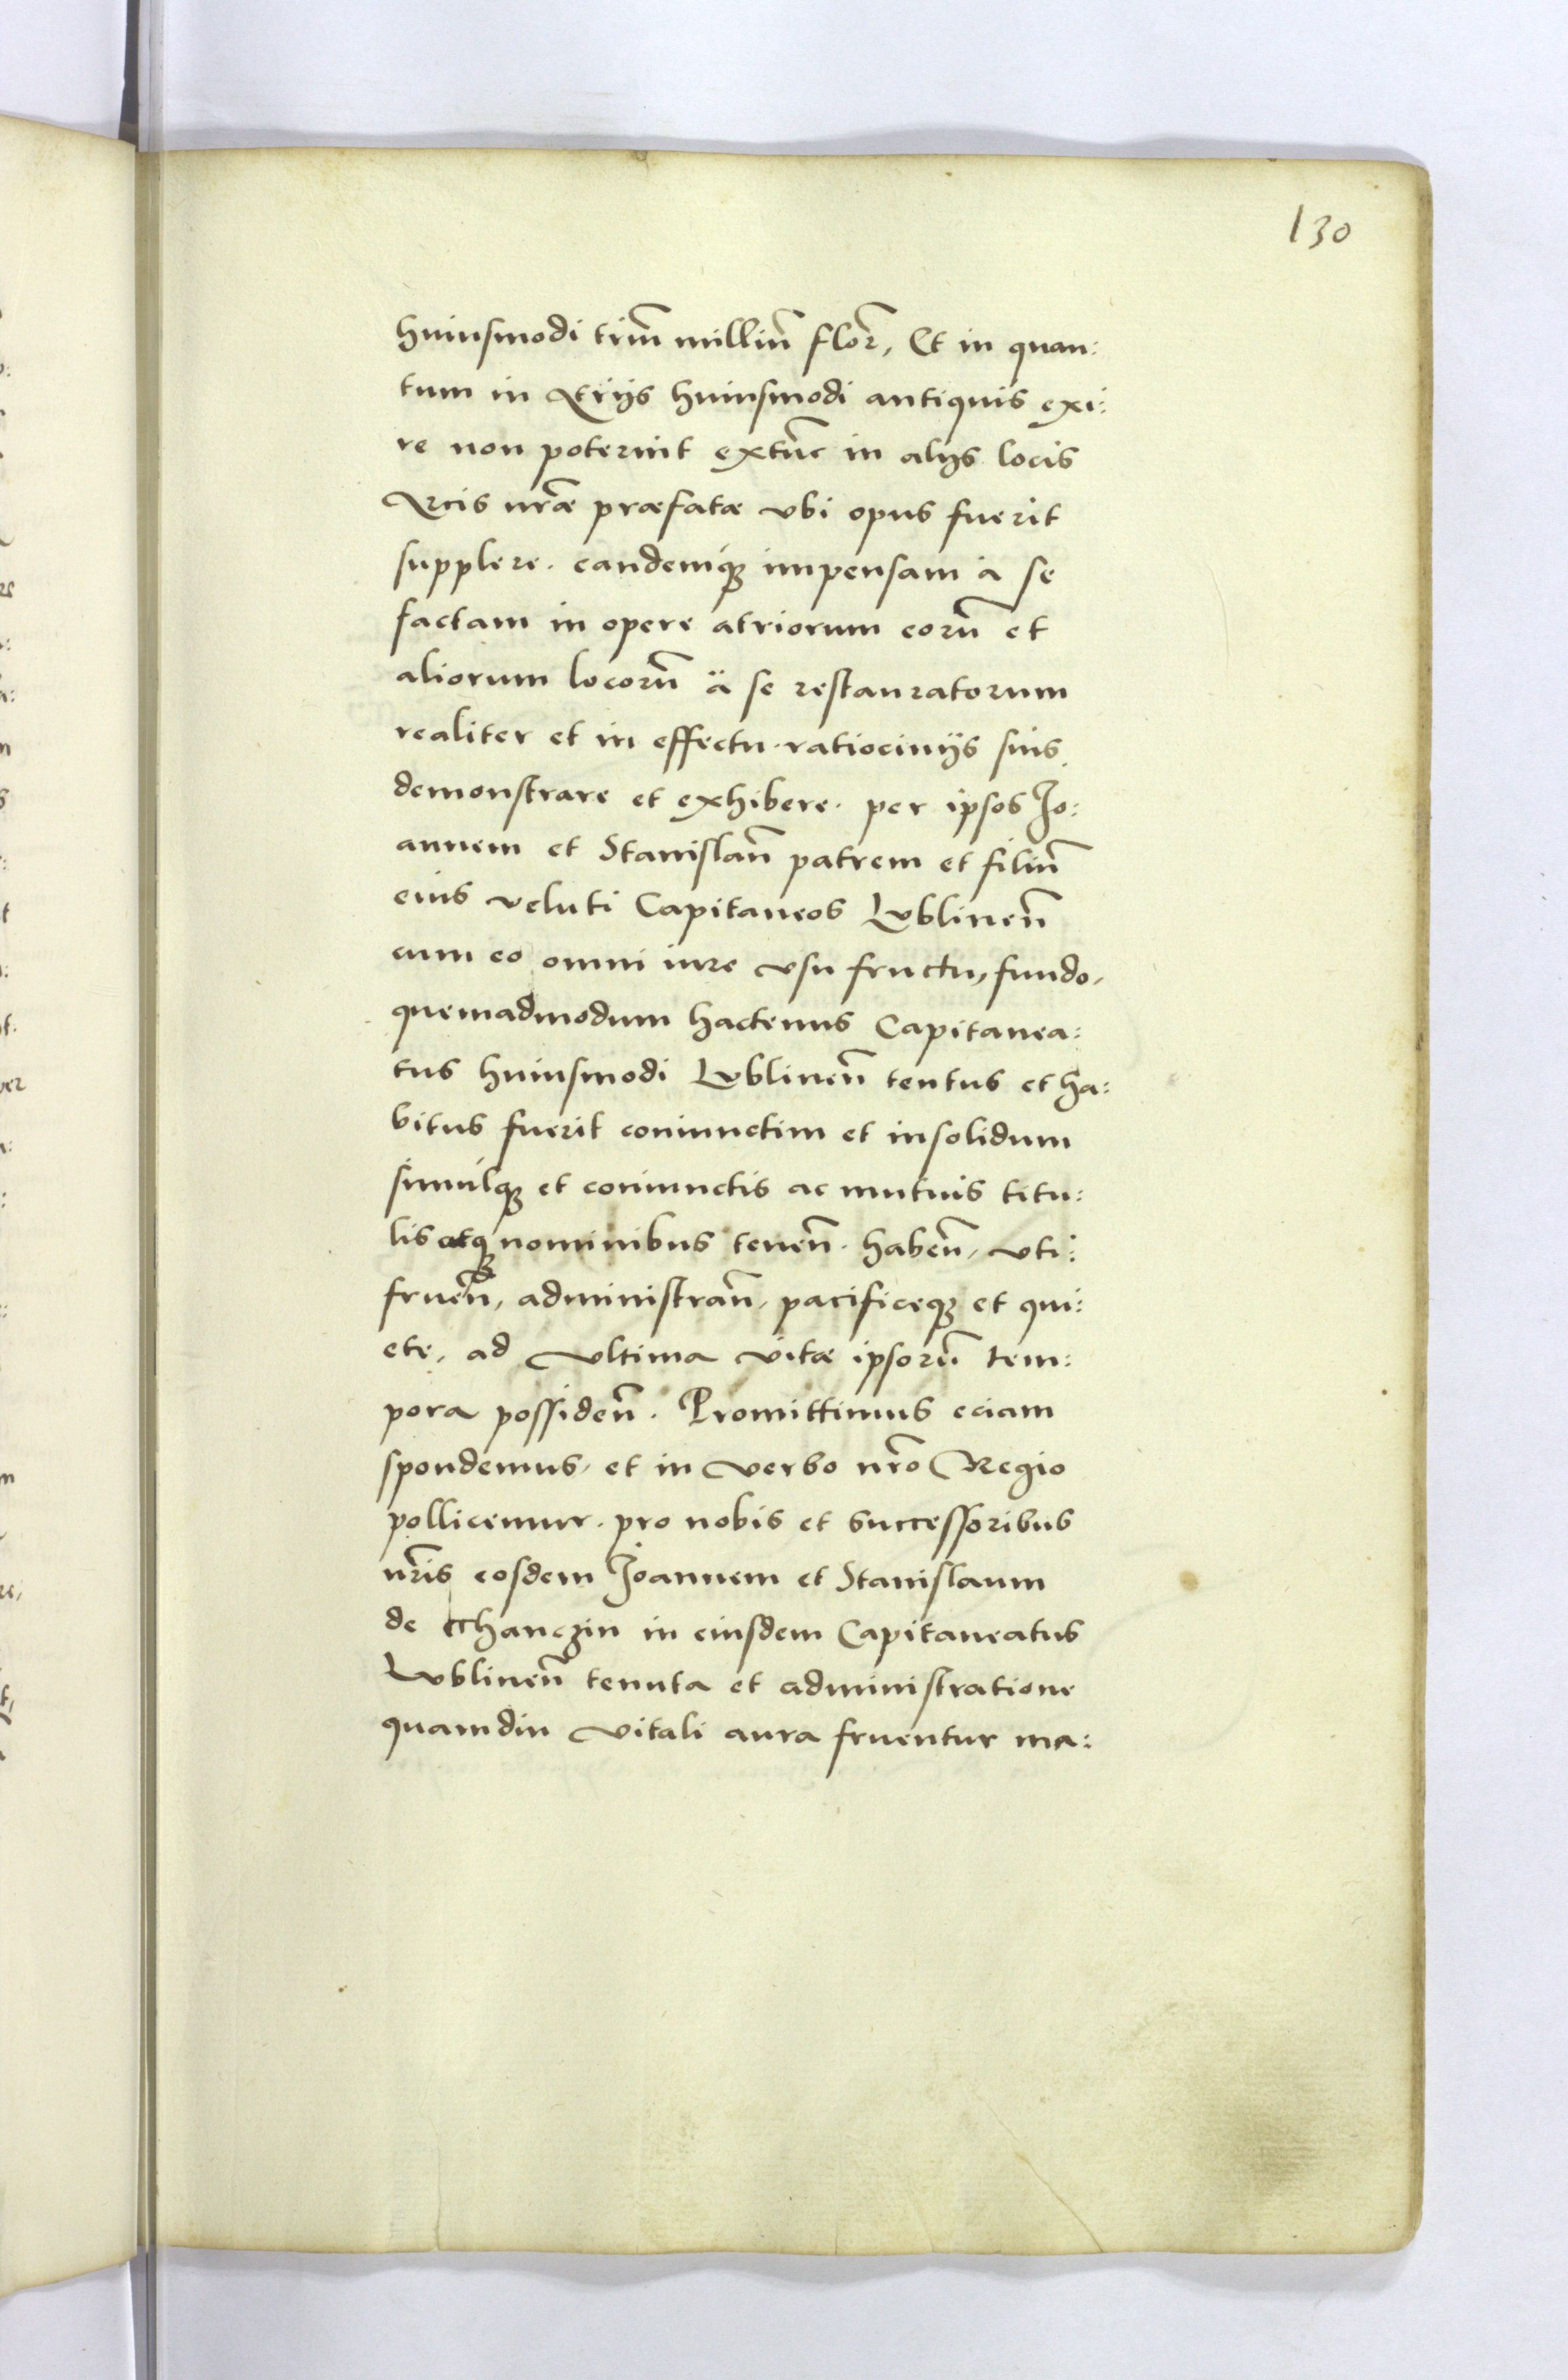 130
huiusmodi triũ milliũ flor̃, Et in quan:
tum in Atrijs huiusmodi antiquis exi:
re non poterint extũc in alijs locis
Arcis nrãe præfatæ vbi opus fuerit
supplere. eandemq̃ impensam à se
factam in opere atriorum eorũ et
aliorum locorũ à se restauratorum
realiter et in effectu. ratiocinijs suis.
demonstrare et exhibere. per ipsos Jo:
annem et Stanislaũ patrem et filiũ
eius veluti Capitaneos Lublineñ
cum eo omni iure vsu fructu, fundo,
quemadmodum hactenus Capitanea:
tus huiusmodi Lublineñ tentus et ha:
bitus fuerit coniunctim et insolidum
simulq̃ et coniunctis ac mutuis titu:
lis atq̃ nominibus teneñ. habeñ, vti:
frueñd, administrañ, pacificeq̃ et qui:
ete, ad vltima vitæ ipsorũ tem:
pora possideñ. Promittimus eciam
spondemus, et in verbo nr̃o Regio
pollicemur. pro nobis et successoribus
nr̃is eosdem Joannem et Stanislaum
de Thanczin in eiusdem Capitaneatus
Lublineñ tenuta et administratione
quamdiu vitali aura fruentur ma: